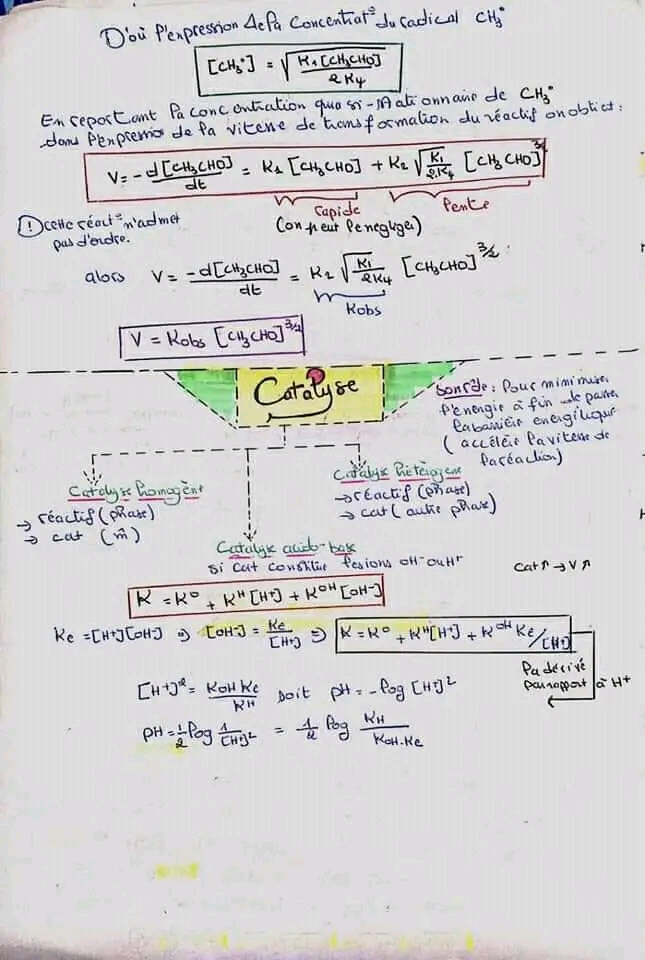 D'où l'expression de la concentrat° du radical CH₃°
[CH₃°] = √(K₁[CH₃CHO] / 2K₄)
En reportant la concentration quasi-stationnaire de CH₃°
dans l'expression de la vitesse de transformation du réactif on obtiet:
V = - d[CH₃CHO]/dt = K₁ [CH₃CHO] + K₂ √(K₁/2K₄) [CH₃CHO]^3/2
rapide lente
(on peut le negliger)
! cette réact° n'admet
pas d'ordre.
alors V = -d[CH₃CHO]/dt = K₂ √(K₁/2K₄) [CH₃CHO]^3/2
Kobs
V = Kobs [CH₃CHO]^3/2
Catalyse
son rôle: Pour minimiser
l'énergie à fin de passer
la barrière energitique
(accélér la vitesse de
la réaction)
Catalyse homogène
→ réactif (phase)
→ cat (m̂)
Catalyse hétérogene
→ réactif (phase)
→ cat (autre phase)
Catalyse acido-base
si cat constitue les ions OH⁻ ou H⁺
cat↑ → V↑
K = K⁰ + Kᴴ[H⁺] + Kᴼᴴ[OH⁻]
Ke = [H⁺][OH⁻] ⇒ [OH⁻] = Ke/[H⁺] ⇒ K = K⁰ + Kᴴ[H⁺] + Kᴼᴴ Ke/[H⁺]
la dérivé
par rapport à H⁺
[H⁺]² = KOH Ke/KH soit pH = -log [H⁺]²
pH = 1/2 log 1/[H⁺]² = 1/2 log KH/KOH.Ke